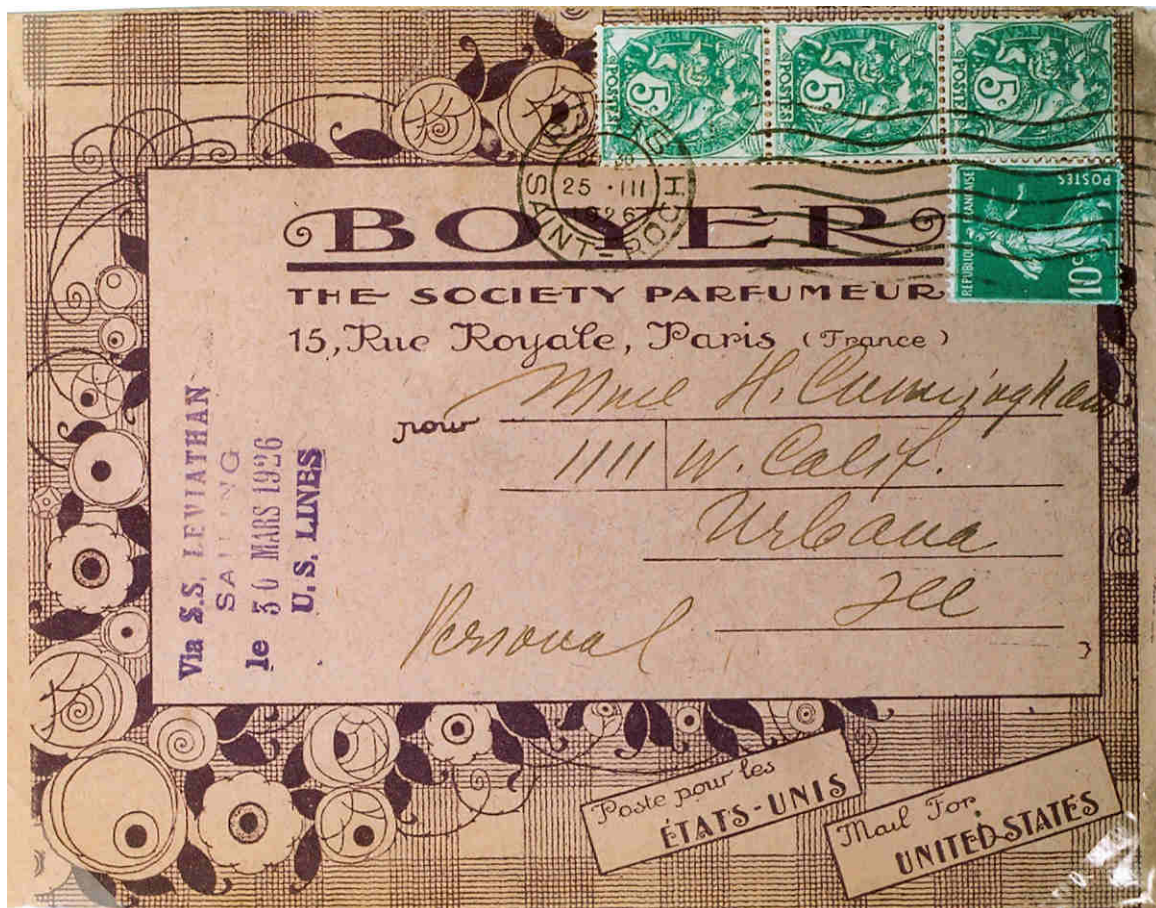 5c POSTES
5c POSTES
5c POSTES
REPUBLIQUE FRANCAISE POSTES 10c
PARIS
25 · III
1926
SAINT-ROCH
BOYER
THE SOCIETY PARFUMEUR
15, Rue Royale, Paris (France)
pour Mme H. Cunningham
1111 W. Calif.
Urbana
Ill
Personal
Via S.S. LEVIATHAN
SAILING
le 30 MARS 1926
U.S. LINES
Poste pour les
ÉTATS-UNIS
Mail For
UNITED-STATES